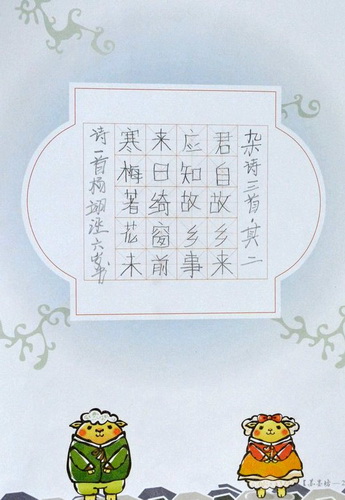 杂诗三首·其二
君自故乡来
应知故乡事
来日绮窗前
寒梅著花未
诗一首杨翊六岁